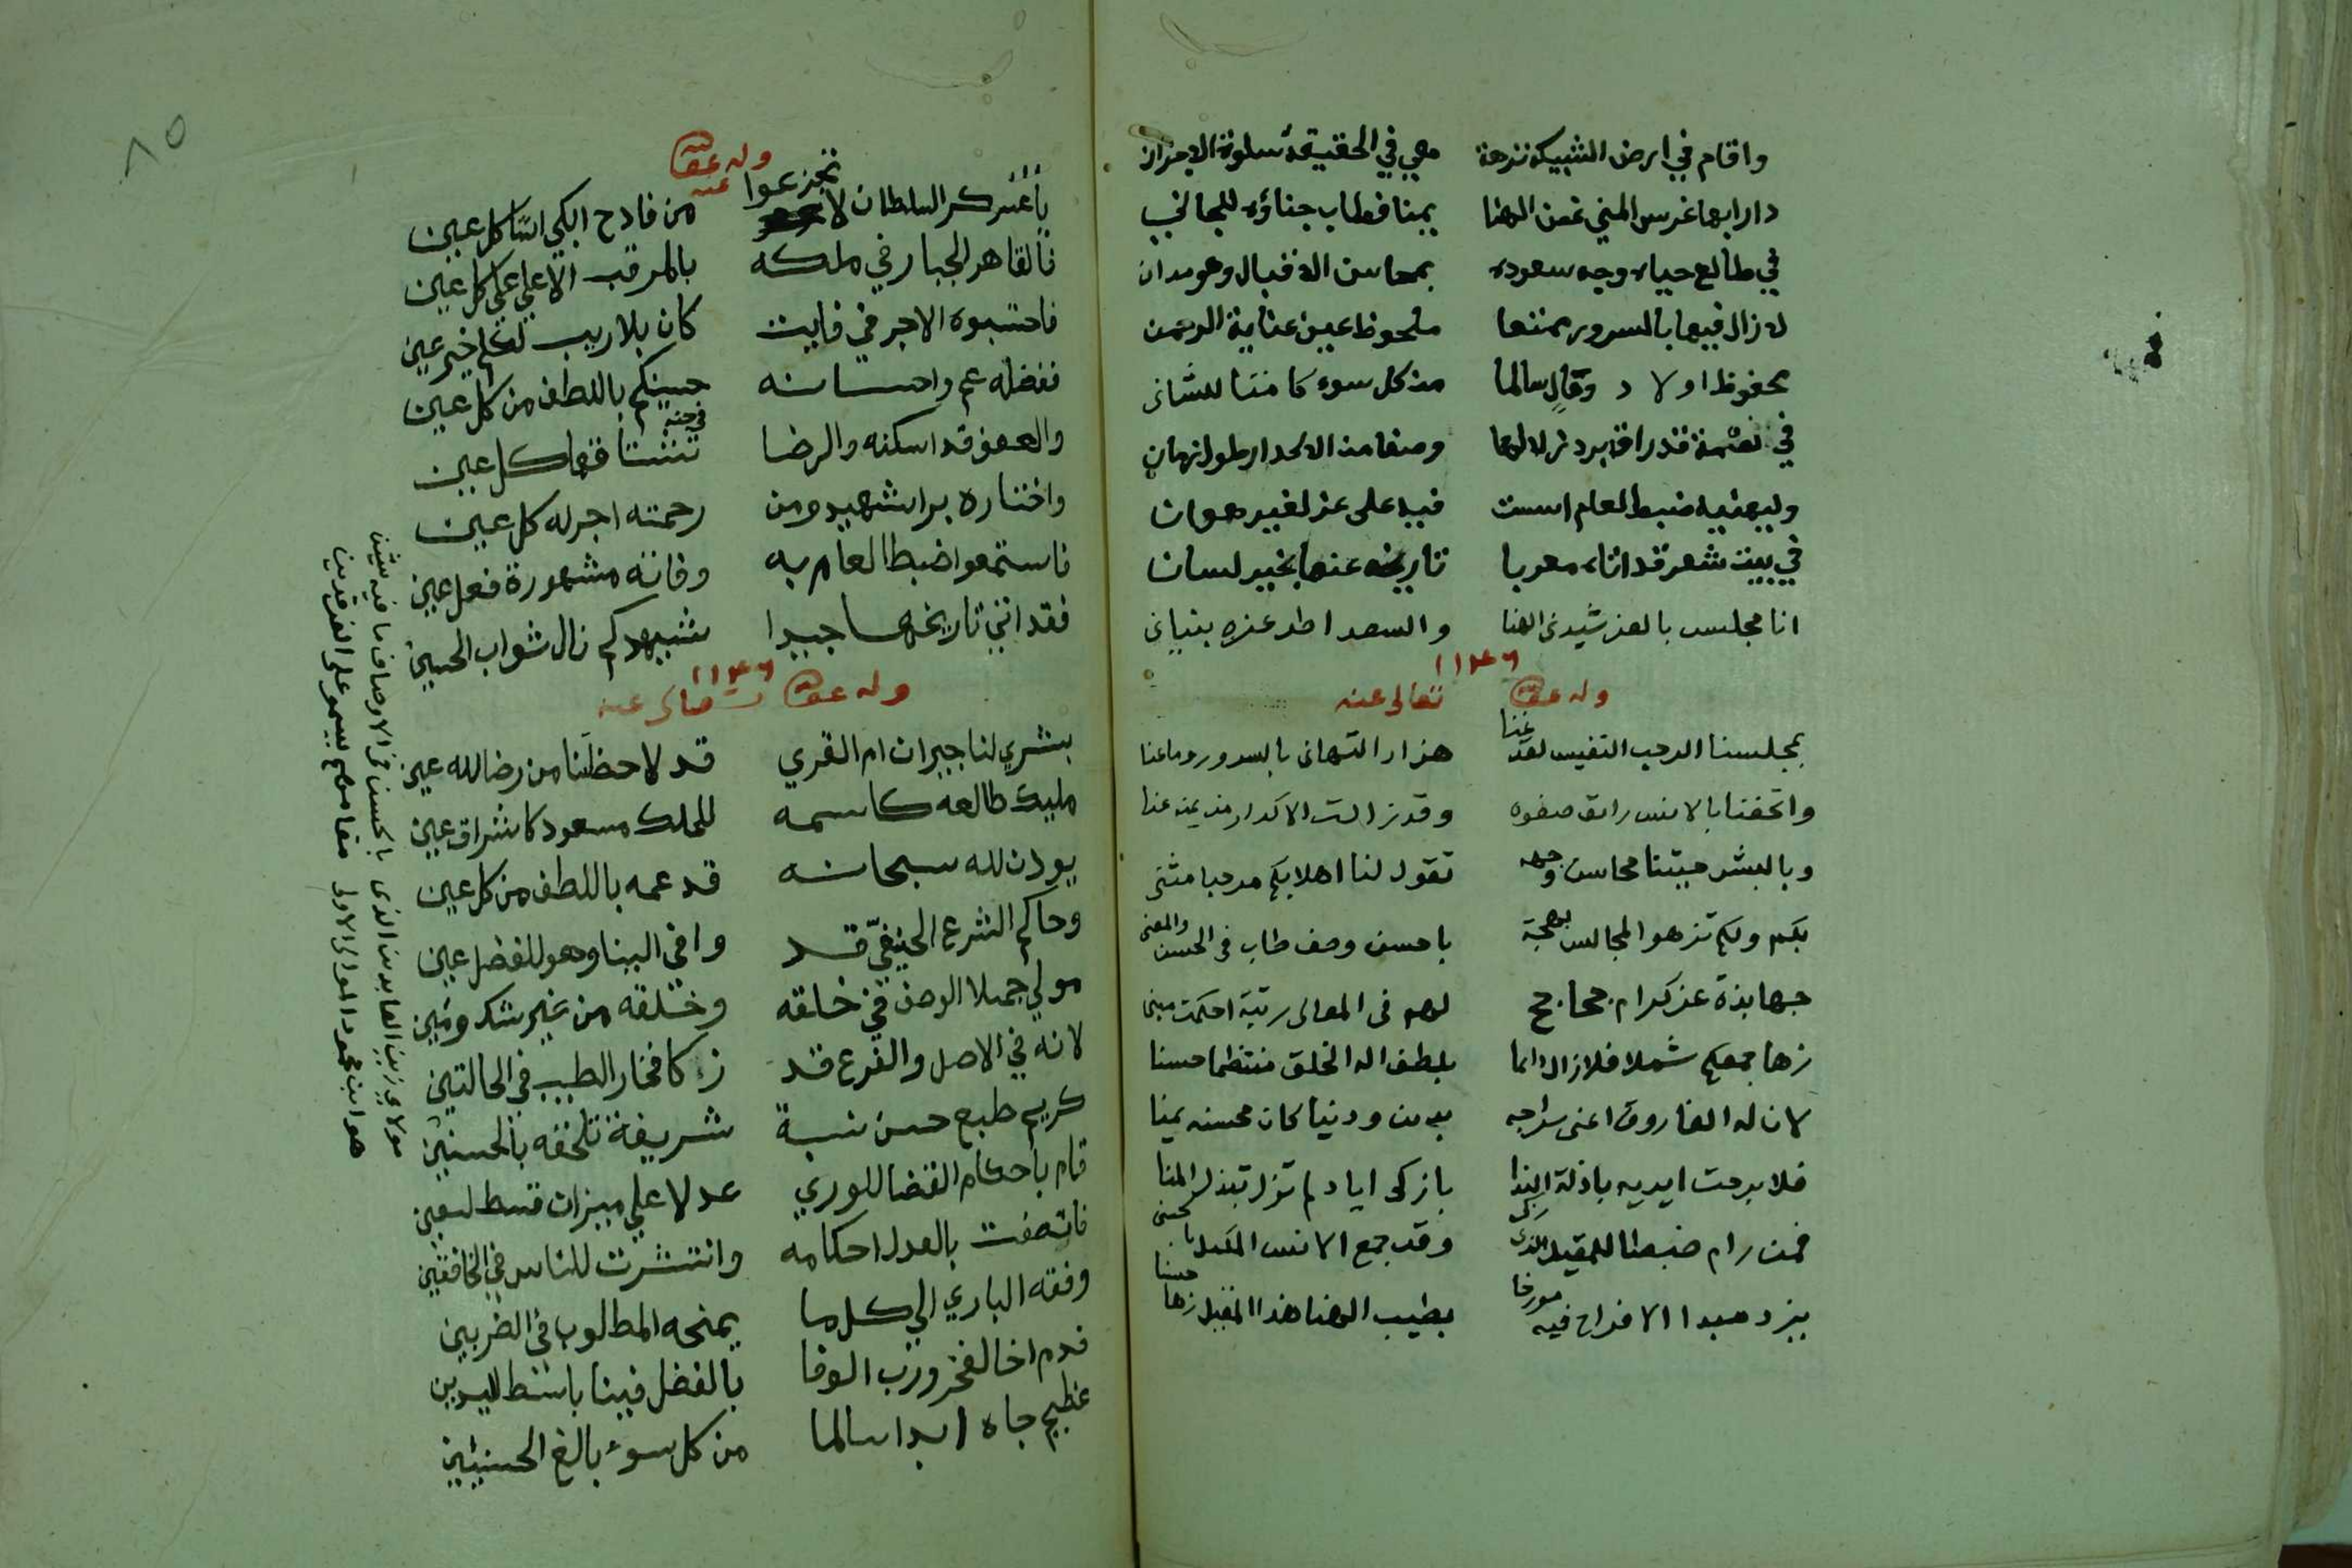 واقام في ارض الشبيكة نزهة هي في الحقيقة سلوة الاحزان
دارا بها غرس المني غصن الهنا يمنا فطاب جناؤه للجاني
في طالع حياه وجه سعوده بمحاسن الاقبال وهو مدان
لا زال فيها بالسرور ممتعا ملحوظ عين عناية الرحمن
محفوظ اولاد وقال سالما من كل سوء كامنا للشاني
في نعمة قد راق برد زلالها وصفا من الاكدار طول زمان
ولبهنيه ضبط العام اسست فيه على عز لغير هوان
في بيت شعر قد اتاه معربا تاريخه عنها بخير لسان
انا مجلس بالعز شيدني الهنا والسعد اطد عزه بنياني
١١٣٦
وله عفا الله تعالى عنه
بمجلسنا الرحب النفيس لقد غنا هزار التهاني بالسرور وما عنا
واتحفنا بالانس رائق صفوه وقد زالت الاكدار من يمنه عنا
وبالبشر حيتنا محاسن وجهه تقول لنا اهلا بكم مرحبا مثنى
بكم ولكم تزهو المجالس بهجة باحسن وصف طاب في الحسن والمعنى
جهابذة عز كرام جحاجح لهم في المعالي رتبة احكمت مبنى
زها جمعكم شملا فلا زال دائما بلطف اله الخلق منتظما حسنا
لان له الفاروق اعنى سراجه بدين ودنيا كان محسنه يمنا
فلا برحت ايديه باذلة الندا بازكى اياد لم تزل تبذل المنا
فمن رام ضبطا للمقيل الذي وقد جمع الانس المكمل بالحسنى
بزد مبدا الافراح فيه مورخا بطيب الهنا هذا المقيل زها حسنا
وله عفا الله عنه
يا عسكر السلطان لا تجزعوا من فادح ابكى اسا كل عين
فالقاهر الجبار في ملكه بالمرقب الاعلي علي كل عين
فاحتسبوه الاجر في فايت كان بلا ريب لكم خير عين
ففضله عم واحسانه حسبكم باللطف من كل عين
والعفو قد اسكنه والرضا في جنة تشتاقها كل عين
واختاره برا شهيدا ومن رحمته اجر له كل عين
فاستمعوا ضبطا لعام به وفاته مشهورة فعل عين
فقد اتني تاريخها جيدا شهيدكم نال ثواب الحسين
١١٣٦
وله عفا الله تعالى عنه
بشري لنا جيران ام القري قد لاحظتنا من رضا الله عين
مليك طالعه كاسمه للملك مسعود كاشراق عين
يودن لله سبحانه قد عمه باللطف من كل عين
وحاكم الشرع الحنيفي قد وافي الينا وهو للفضل عين
مولي جميلا الوصف في خلقه وخلقه من غير شك ومين
لانه في الاصل والفرع قد زكا فخار الطيب في الحالتين
كريم طبع حسن نسبة شريفة تلحقه بالحسنين
قام باحكام القضا للوري عدلا علي ميزان قسط
فاتصفت بالعدل احكامه وانتشرت للناس في الخافقين
وفقه الباري الي كل ما يمنحه المطلوب في
فدم اخا الفخر ورب الوفا بالفضل فينا باسط اليدين
عظيم جاه ابدا سالما من كل سوء بالغ الحسنيين
مولاي زين العابدين الذي بالحسن في الاوصاف ما فيه شين
هو ابن محمود الموالى الاولى مقامهم يسمو على الفرقدين
٨٥